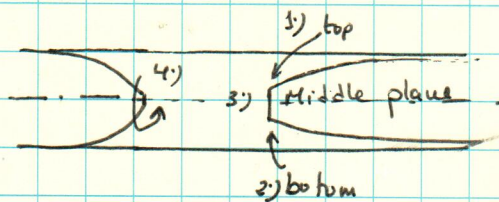 1.) top
4.)
3.) Middle plane
2.) botom